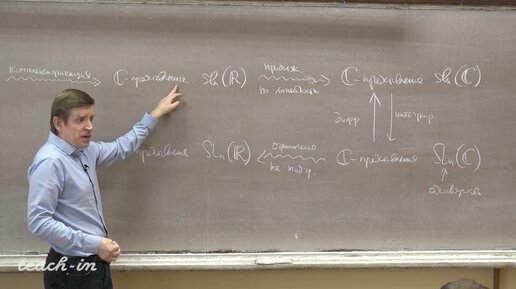 Комплексификация ℂ-представление sl_n(ℝ) продолж. по линейности ℂ-представление sl_n(ℂ)
дифф. интегрир.
представления SL_n(ℝ) ограничено на подгр. ℂ-представления SL_n(ℂ)
односвязна
teach-in